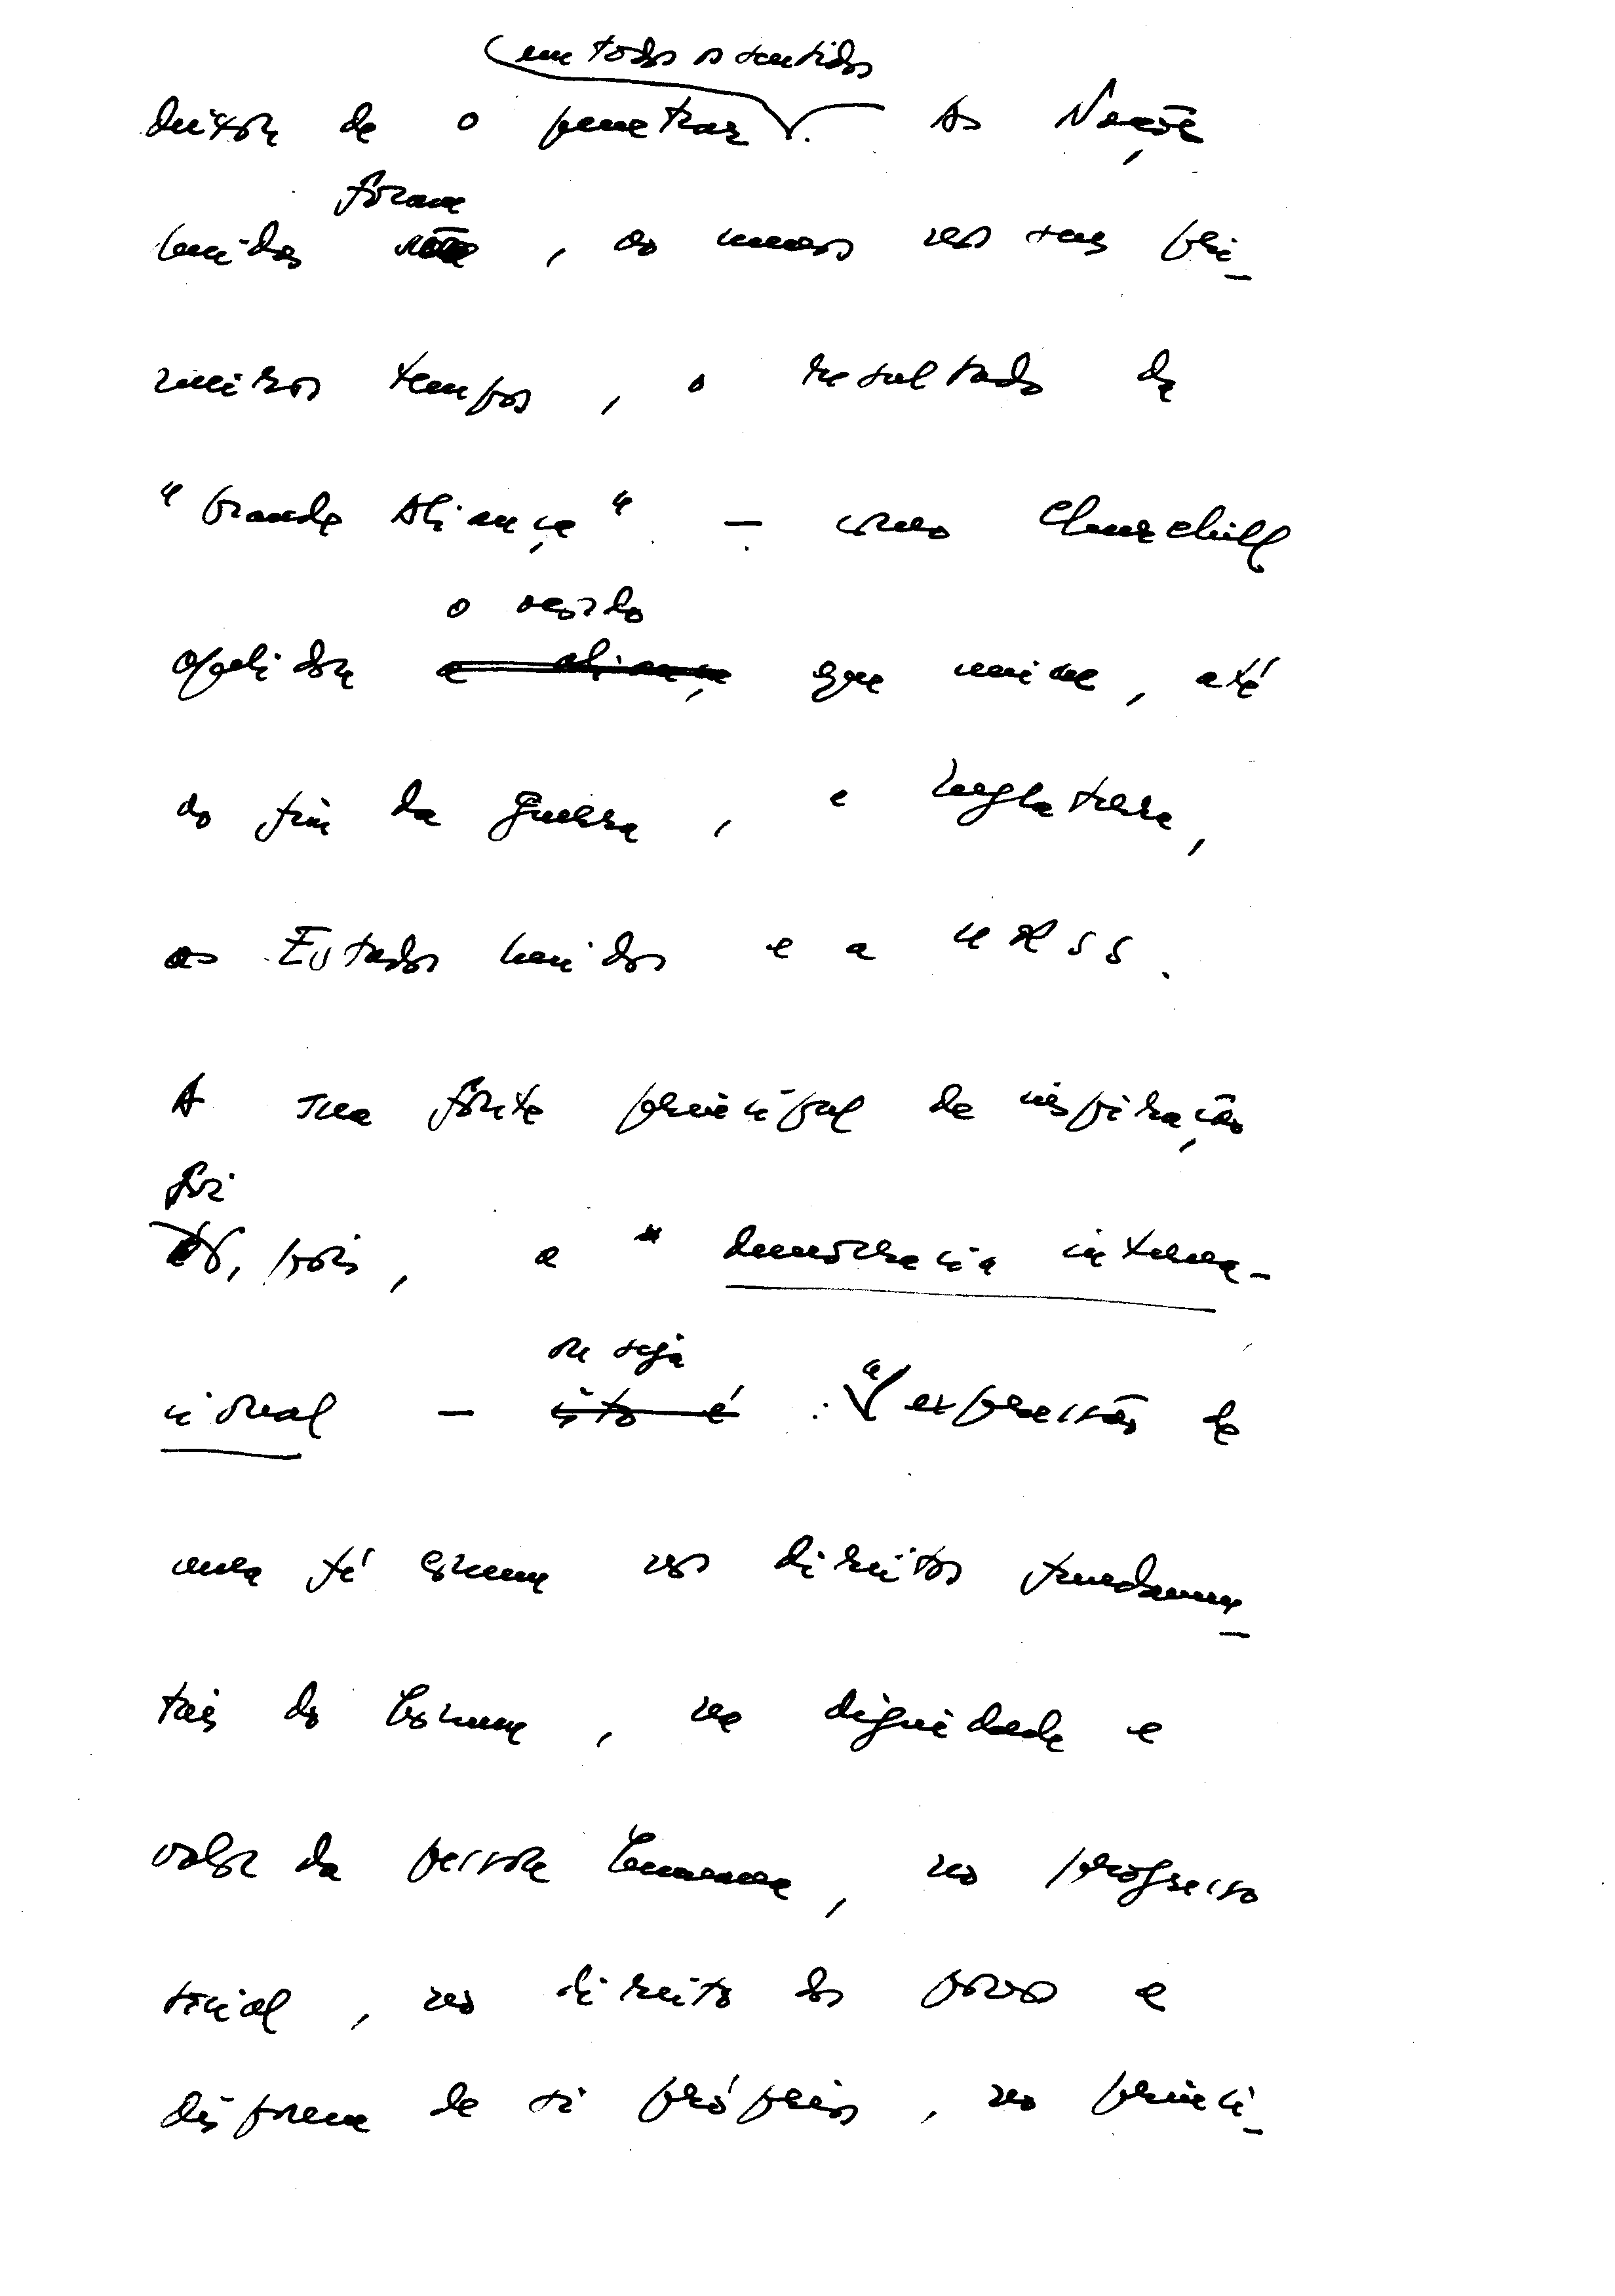 em todos os sentidos
deixou de o penetrar. As Nações
foram
Unidas são, ao menos nos seus pri-
meiros tempos, o resultado da
"Grande Aliança" – como Churchill
o acordo
apelidou a aliança que unira, até
ao fim da guerra, a Inglaterra,
os Estados Unidos e a URSS.
A sua fonte principal de inspiração
foi
é, pois, a democracia interna-
ou seja
cional – isto é : "expressão de
uma fé comum nos direitos fundamen-
tais do homem, na dignidade e
valor da pessoa humana, no progresso
social, no direito dos povos a
disporem de si próprios, no princí-